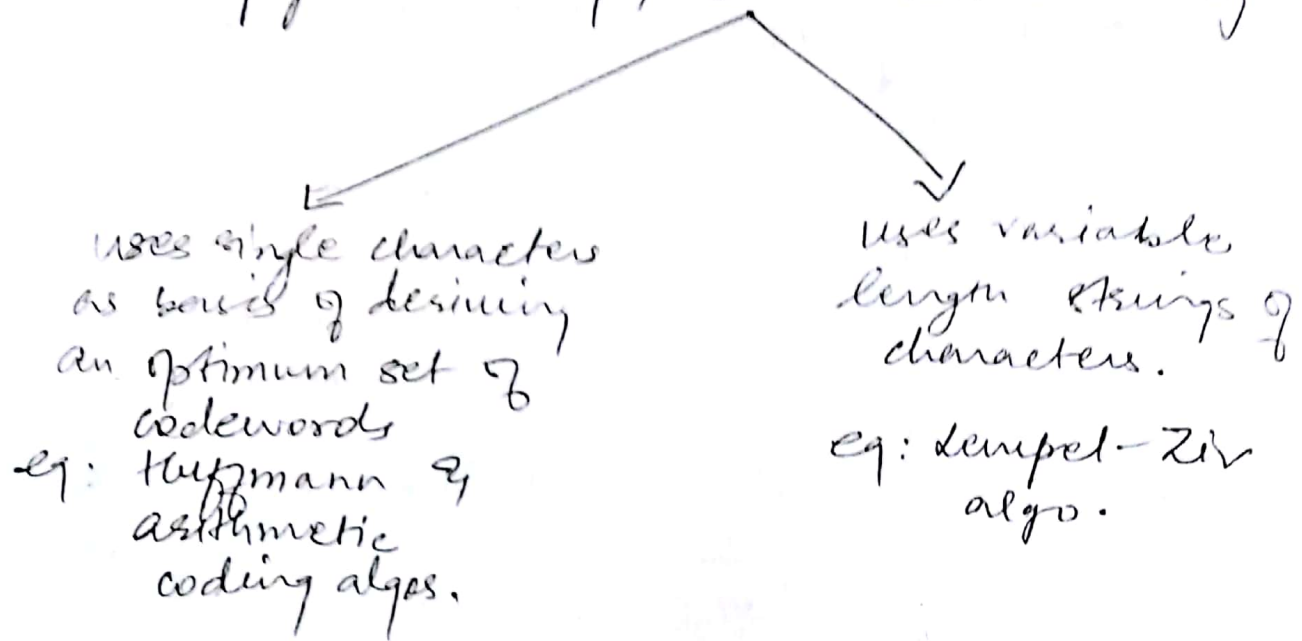 uses single characters
as basis of desining
an optimum set of
codewords
eg: Huffmann &
arithmetic
coding algos.
uses variable
length strings of
characters.
eg: Lempel-Ziv
algo.